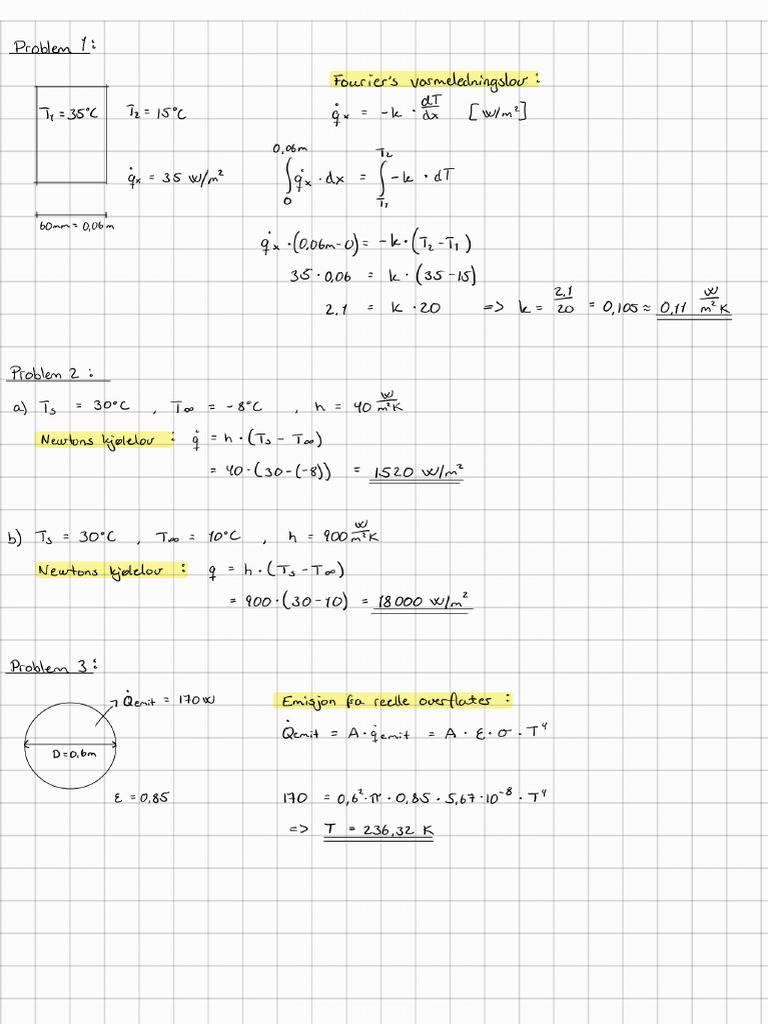 Problem 1:
Fourier's varmeledningslov:
T₁ = 35°C
T₂ = 15°C
q̇ₓ = -k · dT/dx [W/m²]
q̇ₓ = 35 W/m²
∫₀^0,06m q̇ₓ · dx = ∫_T₁^T₂ -k · dT
60mm = 0,06m
q̇ₓ · (0,06m-0) = -k · (T₂-T₁)
35 · 0,06 = k · (35-15)
2,1 = k · 20 => k = 2,1/20 = 0,105 ≈ 0,11 W/m²K
Problem 2:
a) Ts = 30°C , T∞ = -8°C , h = 40 W/m²K
Newtons kjølelov : q̇ = h · (Ts - T∞)
= 40 · (30-(-8)) = 1520 W/m²
b) Ts = 30°C , T∞ = 10°C , h = 900 W/m²K
Newtons kjølelov : q = h · (Ts - T∞)
= 900 · (30-10) = 18000 W/m²
Problem 3:
Q̇emit = 170W
Emisjon fra reelle overflater :
D=0,6m
Q̇emit = A · q̇emit = A · ε · σ · T⁴
ε = 0,85
170 = 0,6² · π · 0,85 · 5,67 · 10⁻⁸ · T⁴
=> T = 236,32 K